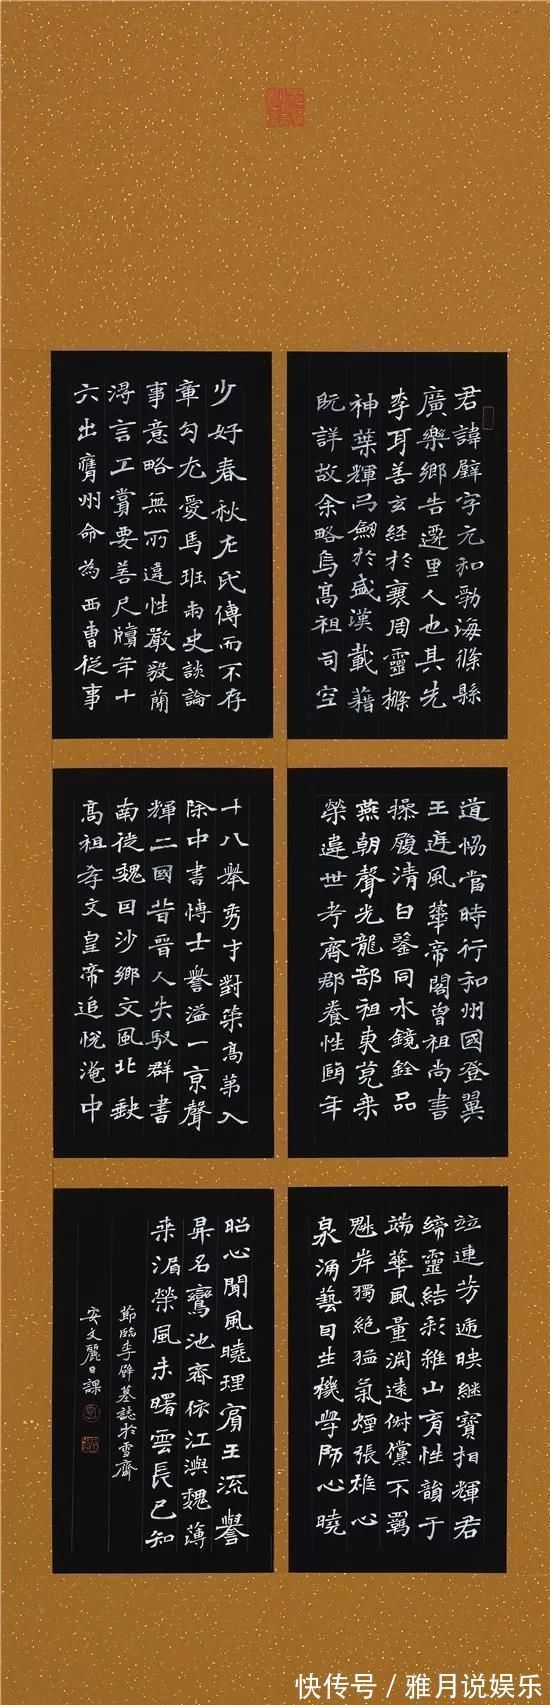 君諱璧字元和勃海條縣
廣樂鄉吉遷里人也其先
李耳著玄經於衰周靈檦
神葉輝弓劒於盛漢載籍
既詳故余略焉高祖司空
道協當時行和州國登翼
王庭風華帝閣曾祖尚書
操履清白鑒同水鏡銓品
燕朝聲光龍部祖東莞乘
榮違世考齊郡養性頤年
竝連芳遞映繼寶相輝君
締靈結彩維山育性韻宇
端華風量淵遠俶儻不羈
魁岸獨絕猛氣煙張雄心
泉涌藝因生機學師心曉
少好春秋左氏傳而不存
章句尤愛馬班兩史談論
事意略無所違性嚴毅簡
得言工賞要善尺牘年十
六出膺州命為西曹從事
十八舉秀才對策高第入
除中書博士譽溢一京聲
輝二國昔晉人失馭群書
南徙魏因沙鄉文風北缺
高祖孝文皇帝追悅淹中
昭心聞風曉理賓王流譽
昇名鸞池齊依江澳魏薄
來湄榮風未曙雲長已知
節臨李璧墓誌於雪齋
安文麗日課
快传号/雅月说娱乐